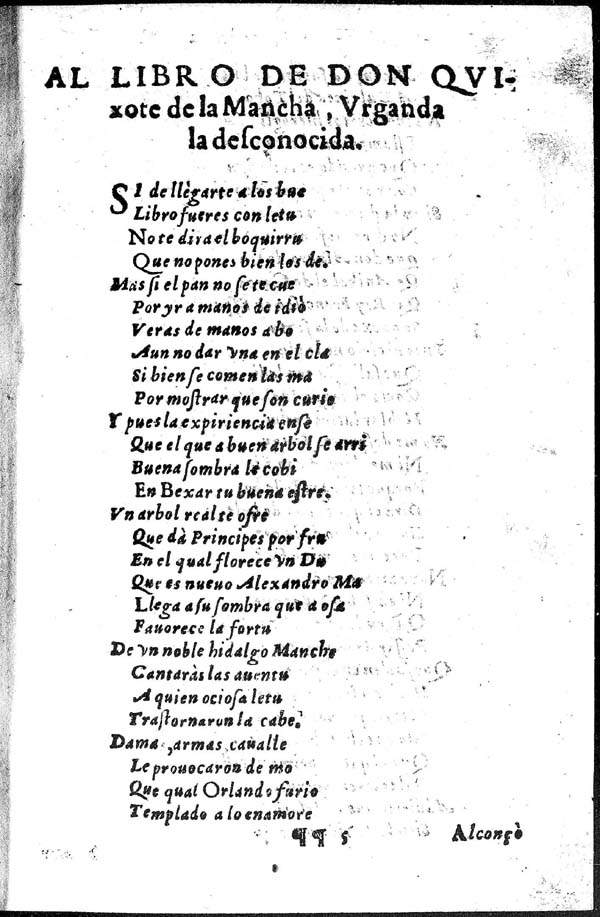 AL LIBRO DE DON QVI-
xote de la Mancha, Vrganda
la desconocida.
SI de llègarte a los bue
Libro fueres con letu
No te dira el boquirru
Que no pones bien los de.
Mas si el pan no se te cue
Por yr a manos de idiò
Veras de manos a bo
Aun no dar vna en el cla
Si bien se comen las ma
Por mostrar que son curio
Y pues la expiriencia ense
Que el que a buen arbol se arri
Buena sombra le cobi
En Bexar tu buena estre.
Vn arbol real te ofre
Que dà Principes por fru
En el qual florece vn Du
Que es nueuo Alexandro Ma
Llega a su sombra que a osa
Fauorece la fortu
De vn noble hidalgo Manche
Cantaràs las auentu
A quien ociosa letu
Trastornaron la cabe.
Dama, armas, caualle
Le prouocaron de mo
Que qual Orlando furio
Templado a lo enamore
¶¶ 5 Alconçò